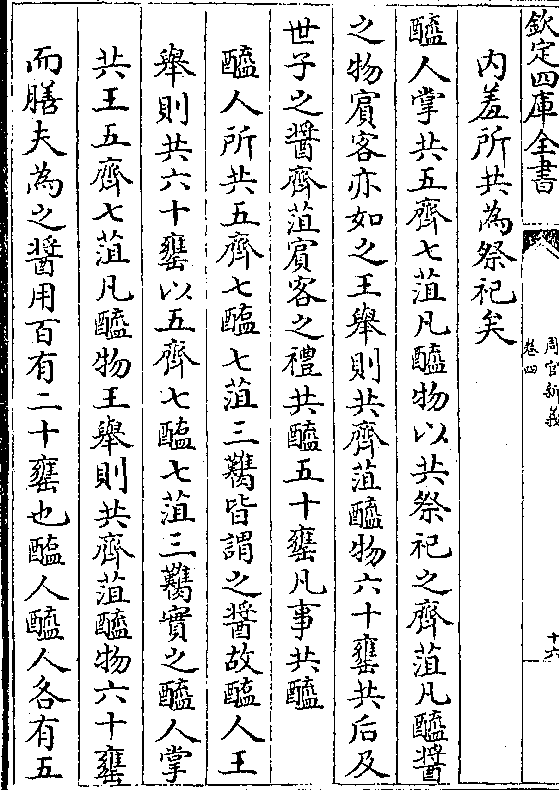 欽定四庫全書
周官新義
卷四
十六
內羞所共為祭祀矣
醯人掌共五齊七菹凡醯物以共祭祀之齊菹凡醯醬
之物賔客亦如之王舉則共齊菹醯物六十罋共后及
世子之醬齊菹賔客之禮共醯五十罋凡事共醯
醢人所共五齊七醢七菹三臡皆謂之醬故醢人王
舉則共六十罋以五齊七醢七菹三臡實之醯人掌
共王五齊七菹凡醯物王舉則共齊菹醯物六十罋
而膳夫為之醬用百有二十罋也醢人醯人各有五